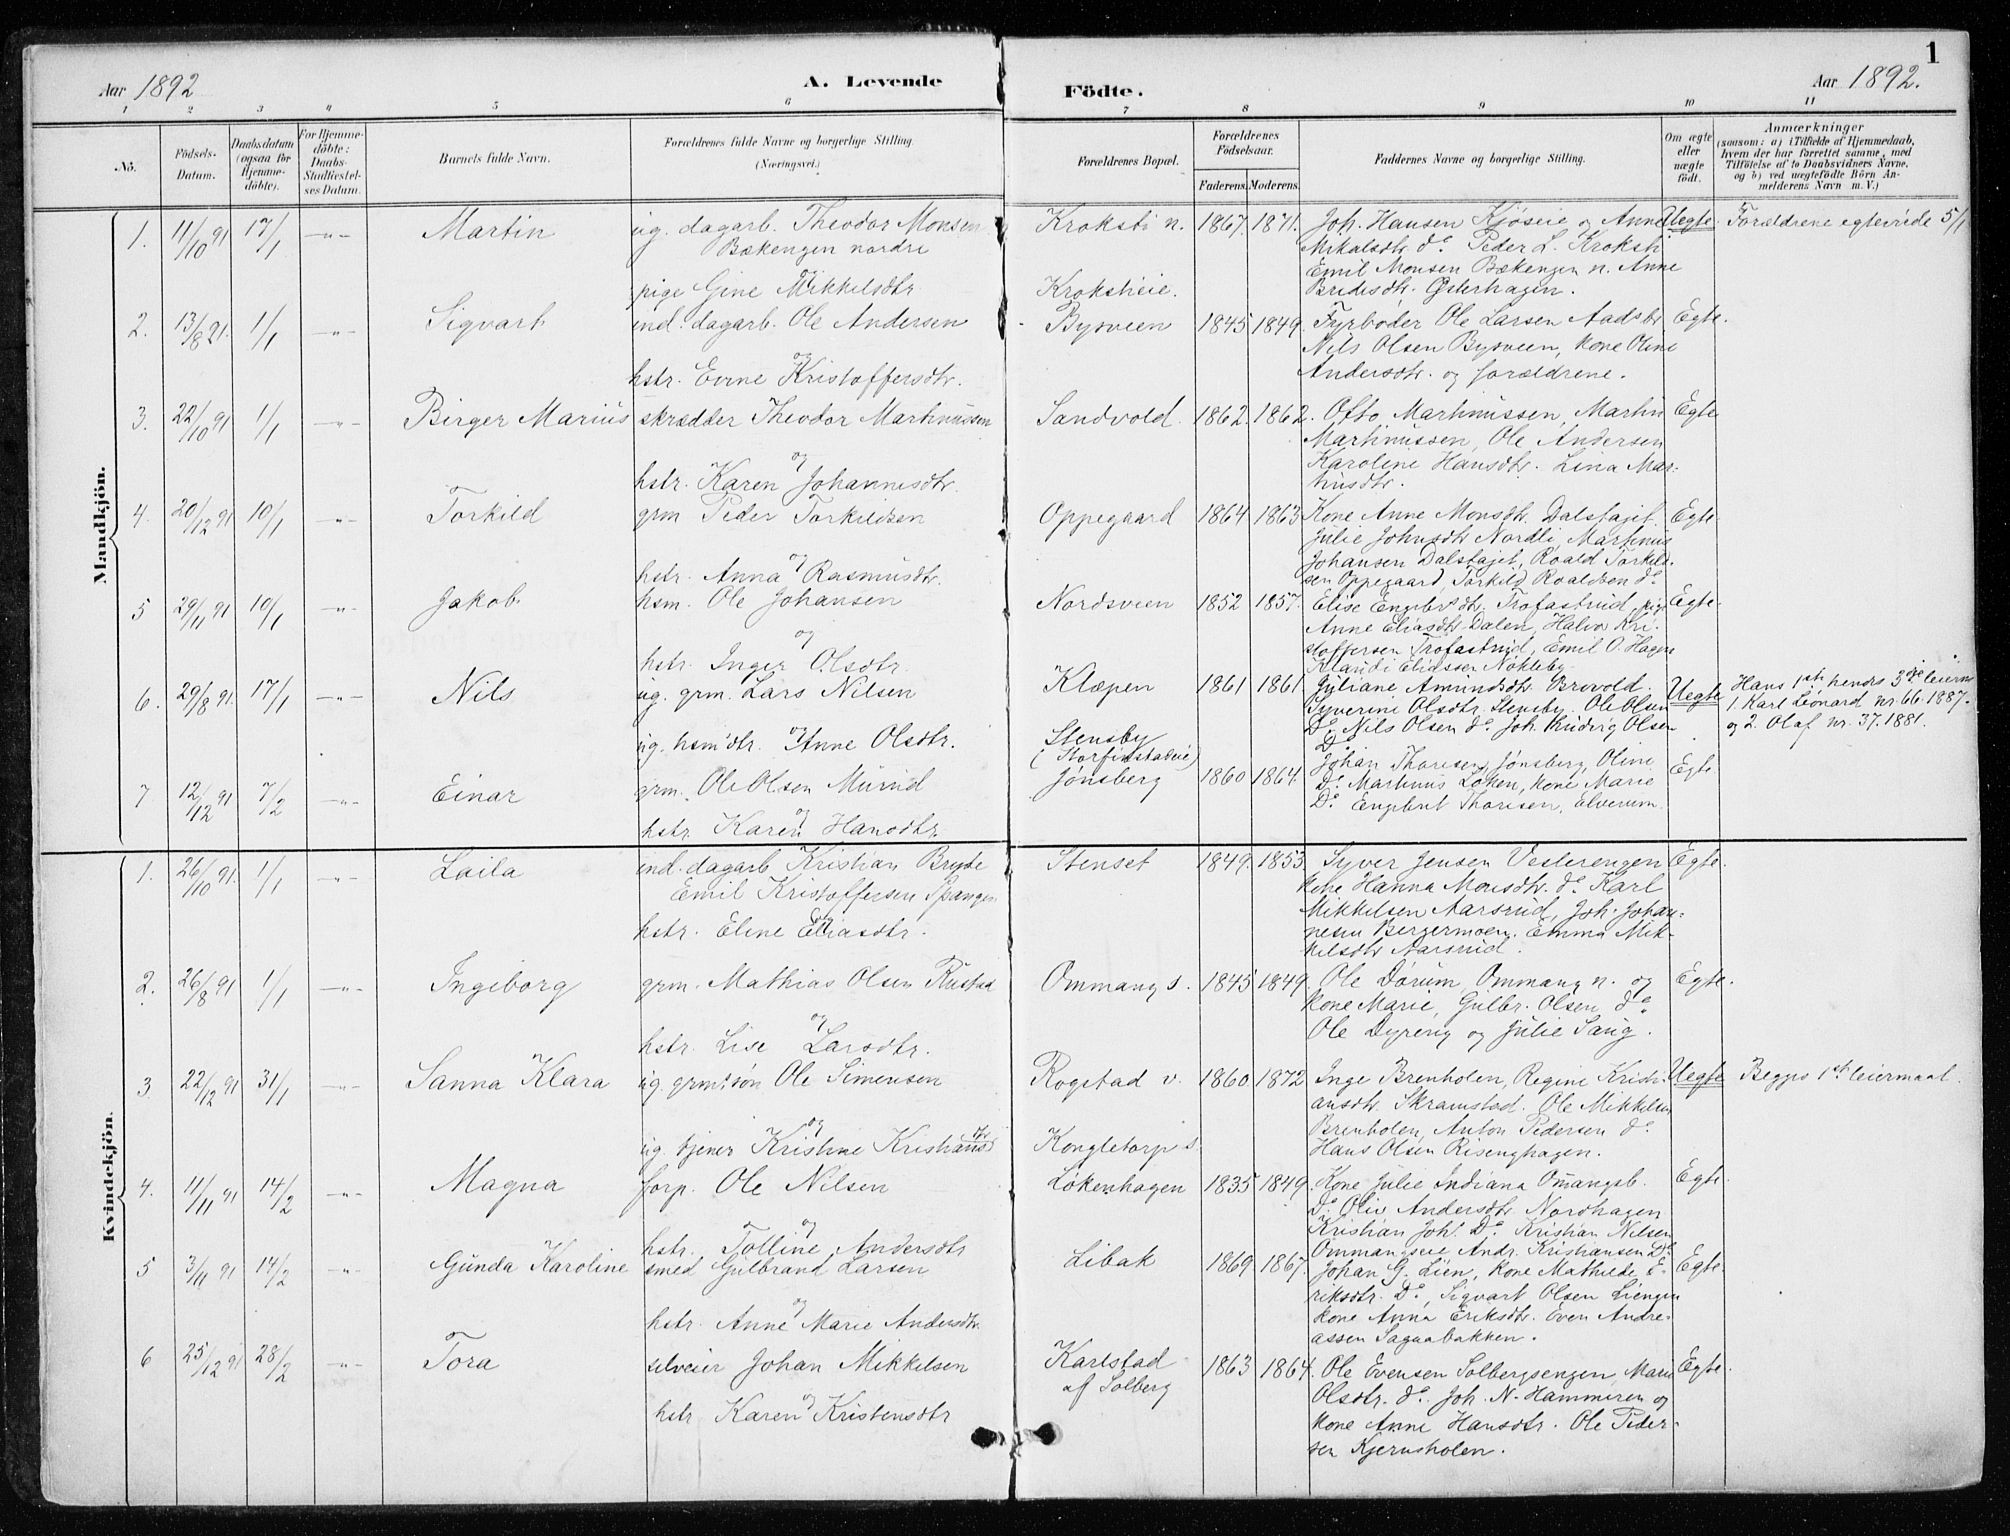 1
Aar 1892
A. Levende
Födte.
Aar 1892.
1 2 3 4 5 6 7 8 9 10 11
Nö.
Födsels-Datum.
Daabsdatum (ogsaa for Hjemmedöbte).
For Hjemmedöbte: Daabs-Stadfæstelses Datum.
Barnets fulde Navn.
Forældrenes fulde Navne og borgerlige Stilling.
(Næringsvei.)
Forældrenes Bopæl.
Forældrenes Födselsaar.
Faderens. Moderens.
Faddernes Navne og borgerlige Stilling.
Om ægte eller uægte födt.
Anmærkninger
(saasom: a) i Tilfælde af Hjemmedaab,
hvem der har forrettet samme, med
Tilföielse af to Daabsvidners Navne,
og b) ved uægtefödte Börn Anmelderens Navn m. V.)
Mandkjön.
1. 11/10 91 17/1 -"- Martin ug. dagarb. Theodor Monsen Kroksti n. 1867. 1871. Joh. Hansen Kjøseie og Anne Uegte. Forældrene egteviede 5/1
Bækengen nordre Mikalsdtr. do Peder L. Kroksti
Emil Monsen Bækengen n. Anne
pige Gine Mikkelsdtr Kroksheie. Bredesdtr. Østerhagen.
2. 13/8 91. 1/1 -"- Sigvart ind. dagarb. Ole Andersen Bysveen 1845 1849. Fyrbøder Ole Larsen Aadsbr. Egte.
og Nils Olsen Bysveen, kone Oline
hstr. Evine Kristoffersdtr. Andersdtr. og forældrene.
3. 22/10 91 1/1 -"- Birger Marius skrædder Theodor Martinussen Sandvold. 1862. 1862. Otto Martinussen, Martin Egte
Martinussen, Ole Andersen
og Karoline Hansdtr. Lina Mar-
hstr. Karen Johannesdtr. tinusdtr.
4. 20/12 91 10/1 -"- Torkild grm Peder Torkildsen Oppegaard 1864 1863 Kone Anne Monsdtr. Dalstøjet. Egte.
Julie Johnsdtr Nordli, Martinus
og Johansen Dalstøjet, Roald Torkild-
hstr. Anna Rasmusdtr. sen Oppegaard, Torkild Roaldsen do
5 29/11 91 10/1 -"- Jakob. hsm. Ole Johansen Nordsveen 1852 1857. Elise Engebrdtr. Trofastrud, pige Egte-
Anne Eliasdtr Dalen, Halvor Kri-
og stoffersen Trofastrud, Emil O. Hagen
hstr. Inger Olsdtr. Klaudi Eliassen Nökleby.
6. 29/8 91. 17/1 -"- Nils ug. grm. Lars Nilsen Klæpen 1861 1861 Juliane Amundsdtr. Brevold. Uegte Hans 1ste hendes 3dje leierm
Syverine Olsdtr. Stensby. Ole Olsen 1. Karl Leonard nr 66. 1887.
Do Nils Olsen do. Joh. Ludvig Olsen og 2. Olaf nr. 37. 1881.
og
ug. hsm'dtr. Anne Olsdtr. Stensby Do
(Storfinstadeie)
7 12/12 91 7/2 -"- Einar grm. Ole Olsen Murud Jønsberg 1860 1864. Johan Thoresen, Jønsberg, Oline Egte
Do. Martinus Løken, kone Marie
og Do. Engebret Thoresen, Elverum.
hstr. Karen Hansdtr.
Kvindekjön.
1. 26/10 91. 1/1 -"- Laila ind. dagarb Kristian Brede Stenset 1849. 1853 Syver Jensen Vesterengen Egte.
Emil Kristoffersen Spangen kone Hanna Monsdtr. do. Karl
og Mikkelsen Aarsrud, Joh. Johan-
hstr. Eline Eliasdtr. nesen Bergermoen. Emma Mik-
kelsdtr Aarsrud.
2. 26/8 91 1/1 -"- Ingeborg grm. Mathias Olsen Rustad Ommang s. 1845 1849. Ole Dørum, Ommang n. og Egte.
kone Marie, Gulbr. Olsen do.
og Ole Dyreng og Julie Saug.
hstr. Lise Larsdtr.
3. 22/12 91 31/1 -"- Sanna Klara ug. grm'søn Ole Simensen Rogstad v. 1860 1872 Inge Brenholen, Regine Kristi- Uegte Begges 1ste leiermaal.
ansdtr Skramstad. Ole Mikkelsen
og Brenholen, Anton Pedersen do
ug. tjener Kristine Kristiansdtr Kongletorp s. Hans Olsen Risenghagen.
4. 11/11 91 14/2 -"- Magna forp. Ole Nilsen Løkenhagen 1835 1849. Kone Julie Indiana Omangsb. Egte.
Do Oliv Andersdtr. Nordhagen
og Kristian Joh. Do. Kristian Nilsen
hstr. Tolline Andersdtr Ommangseie Andr. Kristiansen Do
5 3/11 91 14/2 -"- Gunda Karoline smed Gulbrand Larsen Libak 1869 1867. Johan G. Lien, kone Mathilde E- Egte.
riksdtr. Do, Sigvart Olsen Liengen
og kone Anna Eriksdtr. Even Andre-
hstr. Anne Marie Andersdtr. assen Sagaabakken.
6 25/12 91 28/2 -"- Tora selveier Johan Mikkelsen Karlstad 1863 1864. Ole Evensen Solbergsengen, Marie Egte.
af Solberg Olsdtr. do. Joh. N. Hammeren og
og
hstr Karen Kristensdtr kone Anne Hansdtr. Ole Peder-
sen Kjernsholen.